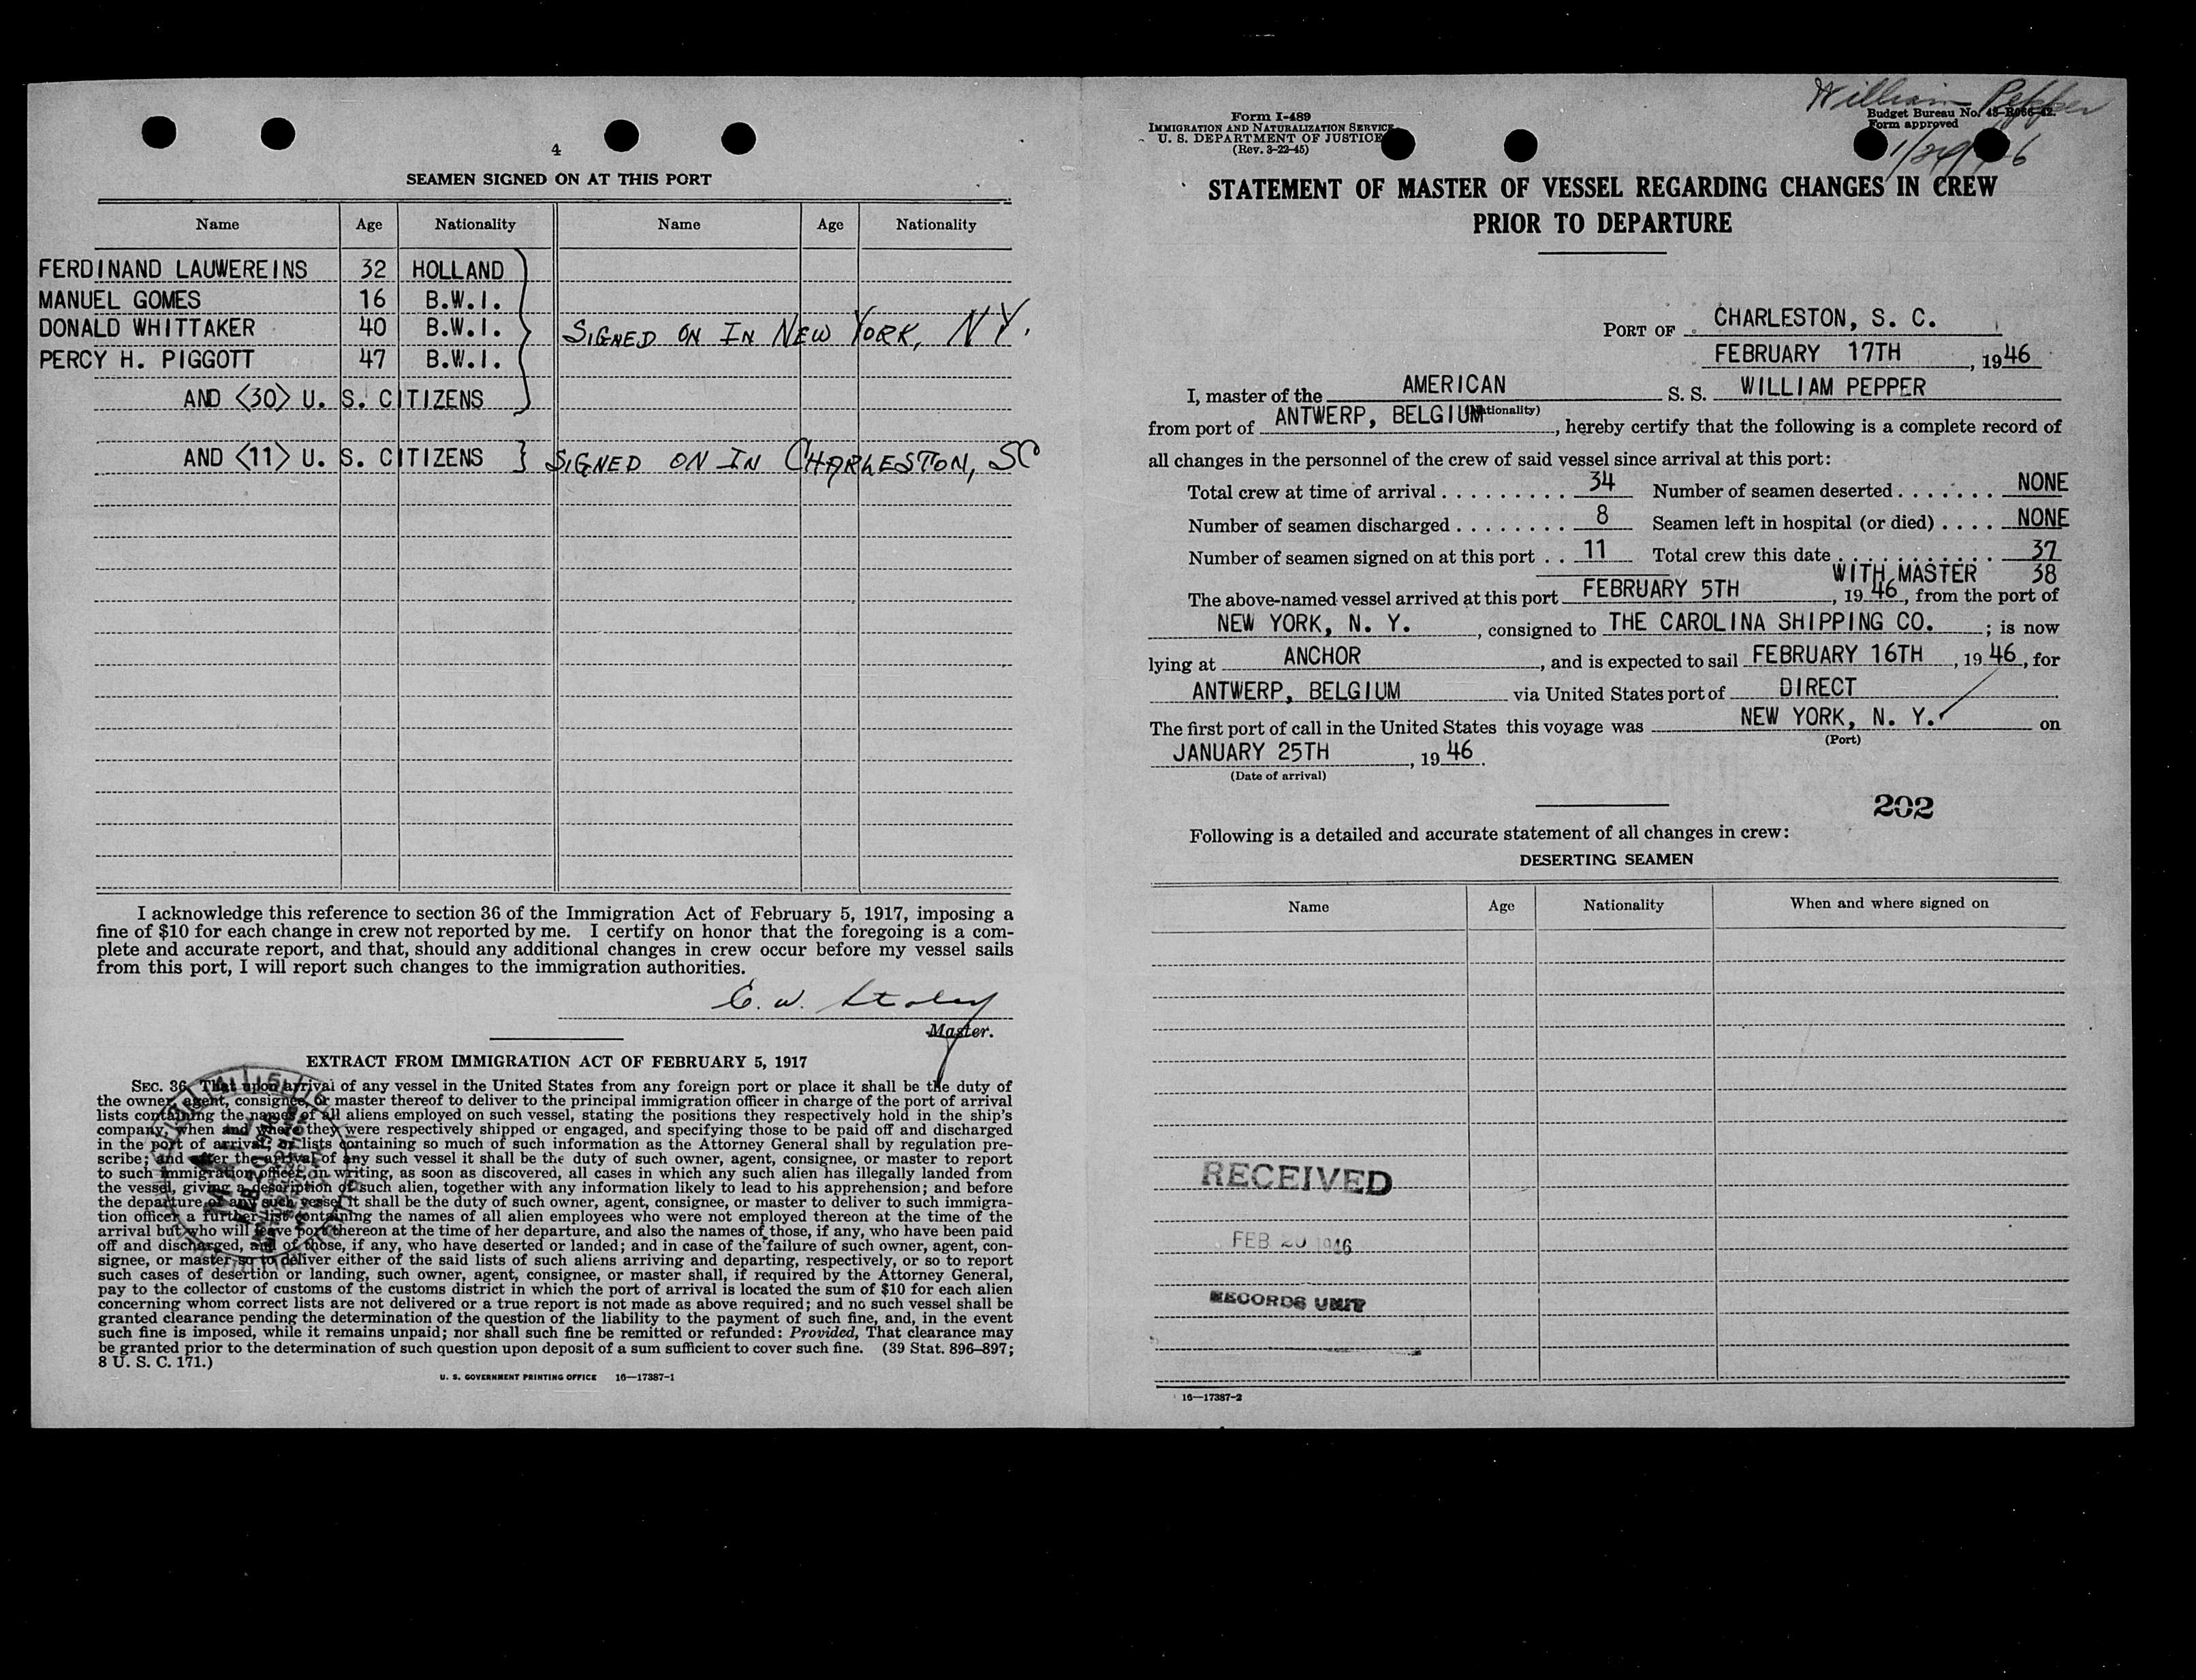 4
SEAMEN SIGNED ON AT THIS PORT
Name Age Nationality Name Age Nationality
FERDINAND LAUWEREINS 32 HOLLAND
MANUEL GOMES 16 B.W.I.
DONALD WHITTAKER 40 B.W.I. SIGNED ON IN NEW YORK, NY.
PERCY H. PIGGOTT 47 B.W.I.
AND <30> U. S. CITIZENS
AND <11> U. S. CITIZENS } SIGNED ON IN CHARLESTON, SC
I acknowledge this reference to section 36 of the Immigration Act of February 5, 1917, imposing a
fine of $10 for each change in crew not reported by me. I certify on honor that the foregoing is a com-
plete and accurate report, and that, should any additional changes in crew occur before my vessel sails
from this port, I will report such changes to the immigration authorities.
E. W. Staley
Master.
EXTRACT FROM IMMIGRATION ACT OF FEBRUARY 5, 1917
SEC. 36. That upon arrival of any vessel in the United States from any foreign port or place it shall be the duty of
the owner, agent, consignee, or master thereof to deliver to the principal immigration officer in charge of the port of arrival
lists containing the names of all aliens employed on such vessel, stating the positions they respectively hold in the ship's
company, when and where they were respectively shipped or engaged, and specifying those to be paid off and discharged
in the port of arrival; or lists containing so much of such information as the Attorney General shall by regulation pre-
scribe; and after the arrival of any such vessel it shall be the duty of such owner, agent, consignee, or master to report
to such immigration officer, in writing, as soon as discovered, all cases in which any such alien has illegally landed from
the vessel, giving a description of such alien, together with any information likely to lead to his apprehension; and before
the departure of any such vessel it shall be the duty of such owner, agent, consignee, or master to deliver to such immigra-
tion officer a further list containing the names of all alien employees who were not employed thereon at the time of the
arrival but who will leave port thereon at the time of her departure, and also the names of those, if any, who have been paid
off and discharged, and of those, if any, who have deserted or landed; and in case of the failure of such owner, agent, con-
signee, or master so to deliver either of the said lists of such aliens arriving and departing, respectively, or so to report
such cases of desertion or landing, such owner, agent, consignee, or master shall, if required by the Attorney General,
pay to the collector of customs of the customs district in which the port of arrival is located the sum of $10 for each alien
concerning whom correct lists are not delivered or a true report is not made as above required; and no such vessel shall be
granted clearance pending the determination of the question of the liability to the payment of such fine, and, in the event
such fine is imposed, while it remains unpaid; nor shall such fine be remitted or refunded: Provided, That clearance may
be granted prior to the determination of such question upon deposit of a sum sufficient to cover such fine. (39 Stat. 896–897;
8 U. S. C. 171.)
U. S. GOVERNMENT PRINTING OFFICE 16—17387-1
William Pepper
Form I-489
IMMIGRATION AND NATURALIZATION SERVICE
U. S. DEPARTMENT OF JUSTICE
(Rev. 3-22-45)
Budget Bureau No. 43-R066-42.
Form approved
STATEMENT OF MASTER OF VESSEL REGARDING CHANGES IN CREW
PRIOR TO DEPARTURE
PORT OF CHARLESTON, S. C.
FEBRUARY 17TH, 1946
I, master of the AMERICAN S. S. WILLIAM PEPPER
(Nationality)
from port of ANTWERP, BELGIUM, hereby certify that the following is a complete record of
all changes in the personnel of the crew of said vessel since arrival at this port:
Total crew at time of arrival . . . . . . . . . 34 Number of seamen deserted . . . . . . . NONE
Number of seamen discharged . . . . . . . . 8 Seamen left in hospital (or died) . . . . NONE
Number of seamen signed on at this port . . 11 Total crew this date . . . . . . . . . . . 37
WITH MASTER 38
The above-named vessel arrived at this port FEBRUARY 5TH, 1946, from the port of
NEW YORK, N. Y., consigned to THE CAROLINA SHIPPING CO.; is now
lying at ANCHOR, and is expected to sail FEBRUARY 16TH, 1946, for
ANTWERP, BELGIUM via United States port of DIRECT
The first port of call in the United States this voyage was NEW YORK, N. Y. on
(Port)
JANUARY 25TH, 1946.
(Date of arrival)
202
Following is a detailed and accurate statement of all changes in crew:
DESERTING SEAMEN
Name Age Nationality When and where signed on
RECEIVED
FEB 20 1946
RECORDS UNIT
16—17387-2